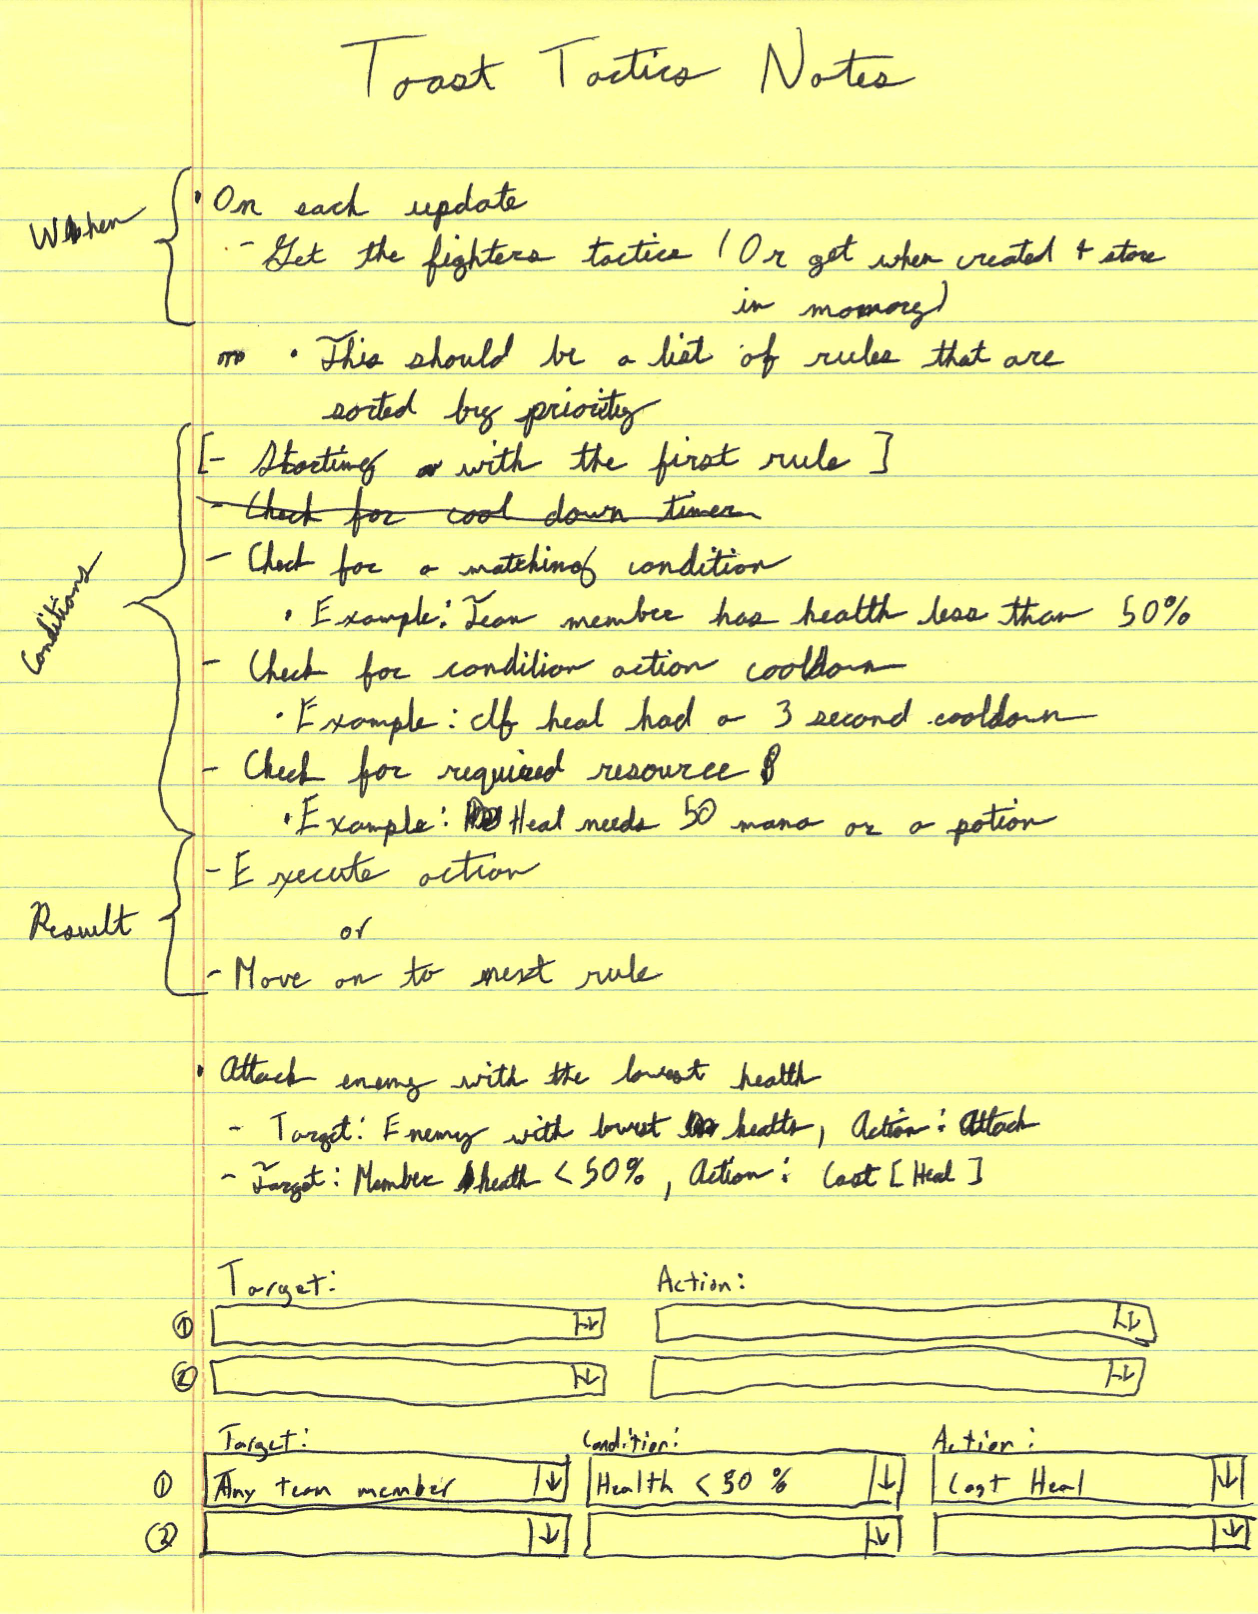 Toast Tactics Notes
When
• On each update
- Get the fighters tactics (Or get when created + store
in momory)
• This should be a list of rules that are
sorted by priority
Conditions
[- Starting with the first rule]
- Check for cool down timer
- Check for a matching condition
• Example: Team member has health less than 50%
- Check for condition action cooldown
• Example: If heal had a 3 second cooldown
- Check for required resource
• Example: Heal needs 50 mana or a potion
Result
- Execute action
or
- Move on to next rule
• Attack enemy with the lowest health
- Target: Enemy with lowest health, Action: Attack
- Target: Member heath < 50%, Action: Cast [Heal]
Target: Action:
① ↓ ↓
② ↓ ↓
Target: Condition: Action:
① Any team member ↓ Health < 50 % ↓ Cast Heal ↓
② ↓ ↓ ↓